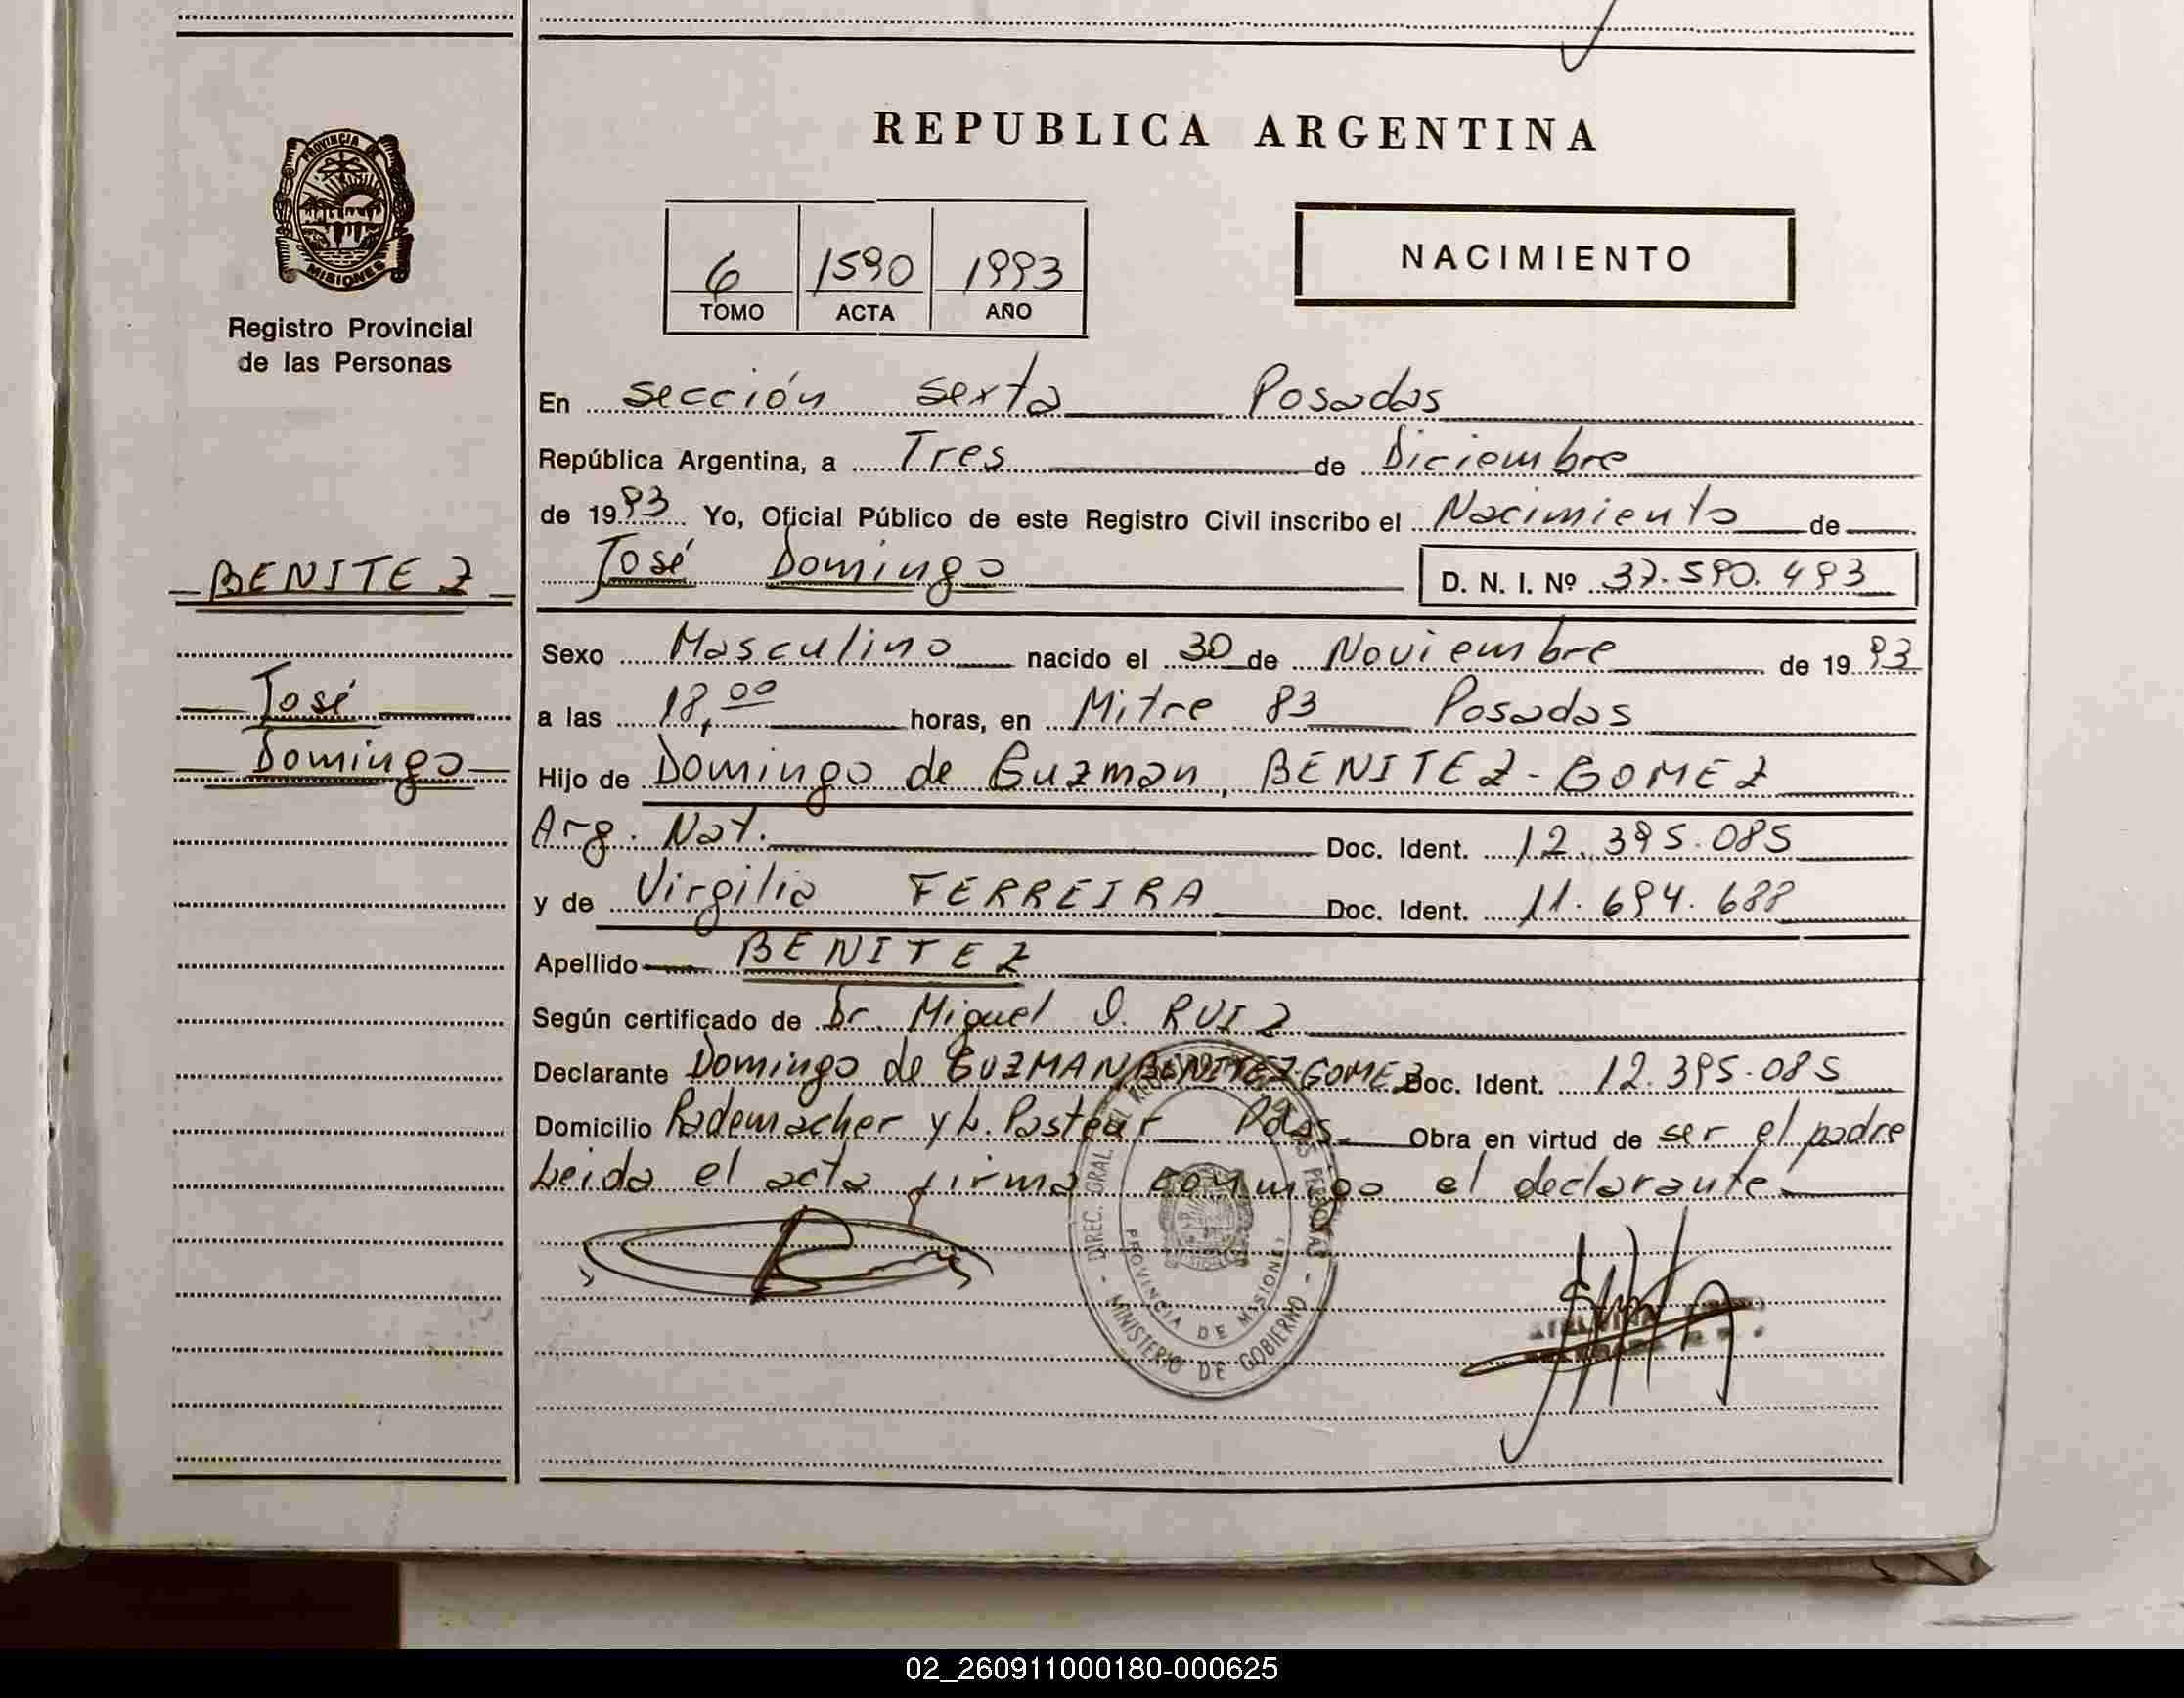 REPUBLICA ARGENTINA
PROVINCIA DE
MISIONES
Registro Provincial
de las Personas
6 1590 1993
TOMO ACTA AÑO
NACIMIENTO
En sección sexta Posadas
República Argentina, a Tres de Diciembre
de 1993 Yo, Oficial Público de este Registro Civil inscribo el Nacimiento de
José Domingo D. N. I. Nº 37.590.493
BENITEZ
José
Domingo
Sexo Masculino nacido el 30 de Noviembre de 1993
a las 18,00 horas, en Mitre 83 Posadas
Hijo de Domingo de Guzman, BENITEZ-GOMEZ
Arg. Nat. Doc. Ident. 12.395.085
y de Virgilia FERREIRA Doc. Ident. 11.694.688
Apellido BENITEZ
Según certificado de Dr. Miguel O. RUIZ
Declarante Domingo de GUZMAN BENITEZ-GOMEZ Doc. Ident. 12.395.085
Domicilio Rademacher y L. Pasteur Pdas. Obra en virtud de ser el padre
Leida el acta firma conmigo el declarante.
DIREC. GRAL DEL REG. DE LAS PERSONAS
PROVINCIA DE MISIONES
MINISTERIO DE GOBIERNO
02_260911000180-000625